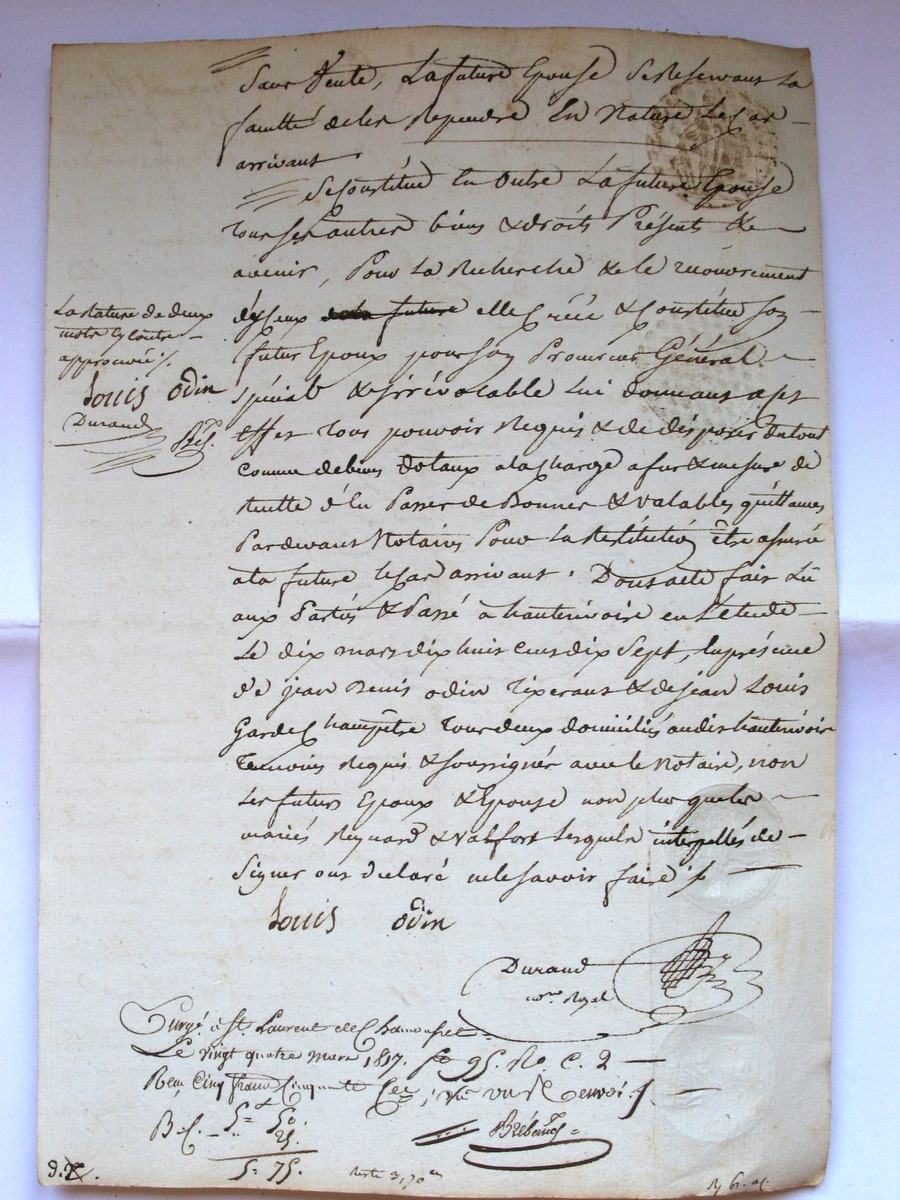 Sans Vente, La future Epouse se Reservant La
faculté de les Reprendre En Nature le Cas
arrivant
Se Constitue En Outre La future Epouse
tous ses autres biens & droits Présents &
avenir, Pour La Recherche & le recouvrement
d'yceux elle Créée & Constitue son
futur Epoux pour son Procureur Général
spécial & irrévocable lui donnant a cet
effet tous pouvoir Requis & de disposer du tout
comme de biens dotaux a la charge a fur & mesure de
recette d'en Passer de Bonnes & valables quittances
Pardevant Notaires Pour La Restitution être assuré
a la future le cas arrivant. Dont acte fait Lû
aux Parties & Passé à hauterivoire en L'étude
Le dix mars dix huit cent dix Sept, En présence
de jean Denis odin tixerant & de jean Louis
Garde Champêtre tous deux domiciliés audit hauterivoire
temoins Requis & soussignés avec le Notaire, non
Les futurs Epoux & Epouse non plus que les
mariés Reynard & valfort lesquels interpellés de
signer ont declaré ne le savoir faire
La rature de deux
mots cy contre
approuvée
Louis odin
Durand
Louis odin
Durand
nore Royal
à St Laurent de Chamousset
Le vingt quatre mars 1817. fo 95. Ro. C. 2
Reçu Cinq francs Cinquante Ces,
5 50
5. 75.
Reste 3,70